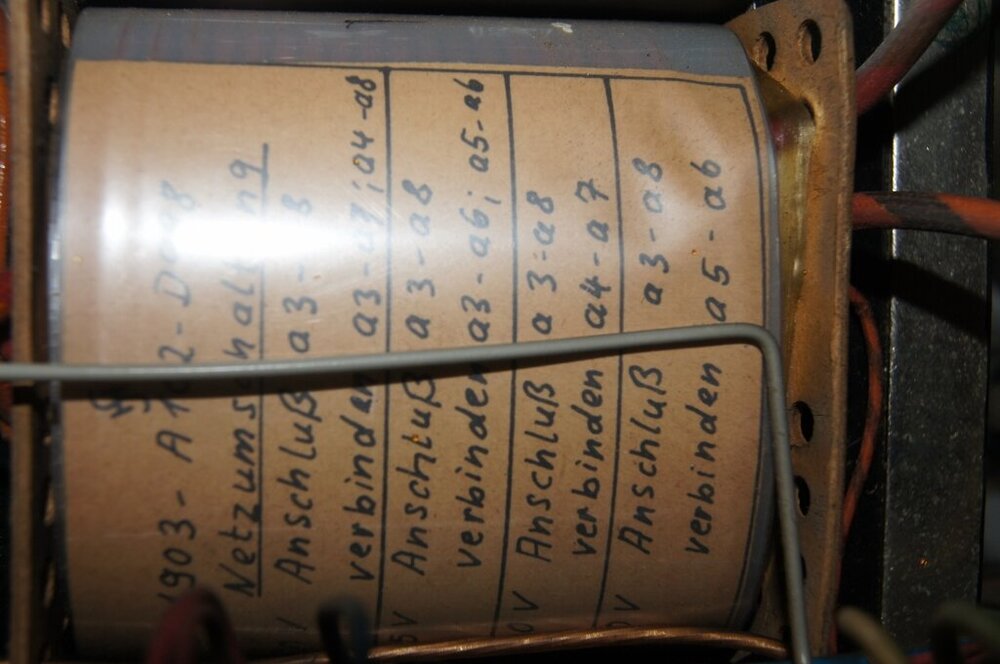 Netzumschaltung
Anschluß a3-
verbinden a3- ; a4-a8
V Anschluß a3-a8
verbinden a3-a6; a5-a6
0V Anschluß a3-a8
verbinden a4-a7
V Anschluß a3-a8
verbinden a5-a6